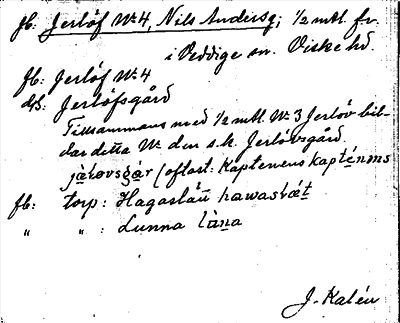 fb. Jerlöf Nr. 4, Nils Andersg; 1/2 mtl. fr.
i Veddige sn. Viske hd.
fb: Jerlöf Nr. 4
ds: Jerlöfsgård
Tillsammans med 1/2 mtl. Nr. 3 Jerlöv bil-
dar detta Nr. den s. k. Jerlövsgård.
(oftast: Kaptenens
fb: torp: Hagaslätt
" " : Lunna
J. Kalén